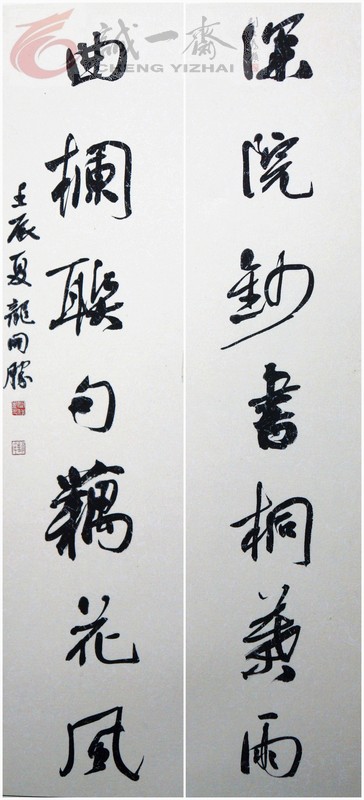 誠一齋
CHENG YIZHAI
深院鈔書桐葉雨
曲欄聯句藕花風
壬辰夏龍開勝